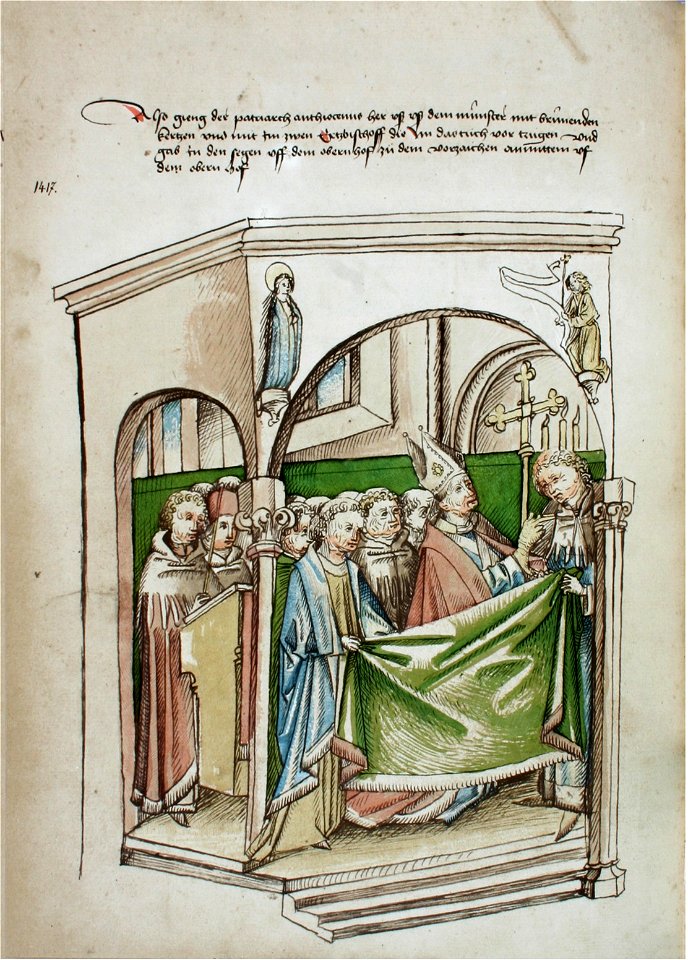 Also gieng der patriarch anthiocenus her vß vß dem münster mit brinnenden
kertzen vnd mit im zwen Ertzbischoff die im das tuch vor trugen vnd
gab in den segen vff dem obern hof zů dem vorzaichen anmitten vf
dem obern hof
1417.